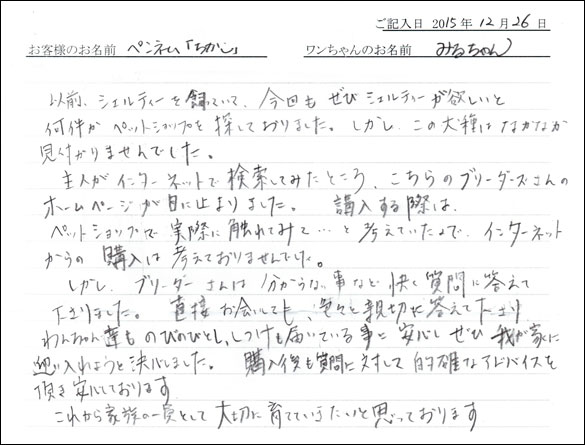 ご記入日 2015年 12月 26日
お客様のお名前 ペンネーム「ちかし」 ワンちゃんのお名前 みるちゃん
以前、シェルティーを飼っていて、今回もぜひシェルティーが欲しいと
何件かペットショップを探しておりました。しかし、この犬種はなかなか
見付かりませんでした。
主人がインターネットで検索してみたところ、こちらのブリーダーズさんの
ホームページが目に止まりました。 購入する際は、
ペットショップで実際に触れてみて…と考えていたので、インターネット
からの購入は考えておりませんでした。
しかし、ブリーダーさんは分からない事など快く質問に答えて
下さりました。直接お会いしても、色々と親切に答えて下さり
わんちゃん達ものびのびとし、しつけも届いている事に安心しぜひ我が家に
迎い入れようと決心しました。購入後も質問に対して的確なアドバイスを
頂き安心しております
これから家族の一員として大切に育てていきたいと思っております